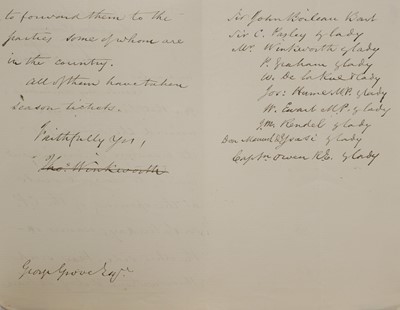 to forward them to the
parties some of whom are
in the country.
All of them have taken
season tickets.
Faithfully Yrs,
Thos. Winkworth
George Grove Esqre.
Sir John Boileau Bart
Sir C. Pasley & lady
Mr. Winkworth & lady
P. Graham & lady
W. De la Rue & lady
Jos: Hume M.P. & lady
W. Ewart M.P. & lady
J.M. Rendel & lady
Don Manuel de Ysasi & lady
Captn. Owen R.E. & lady